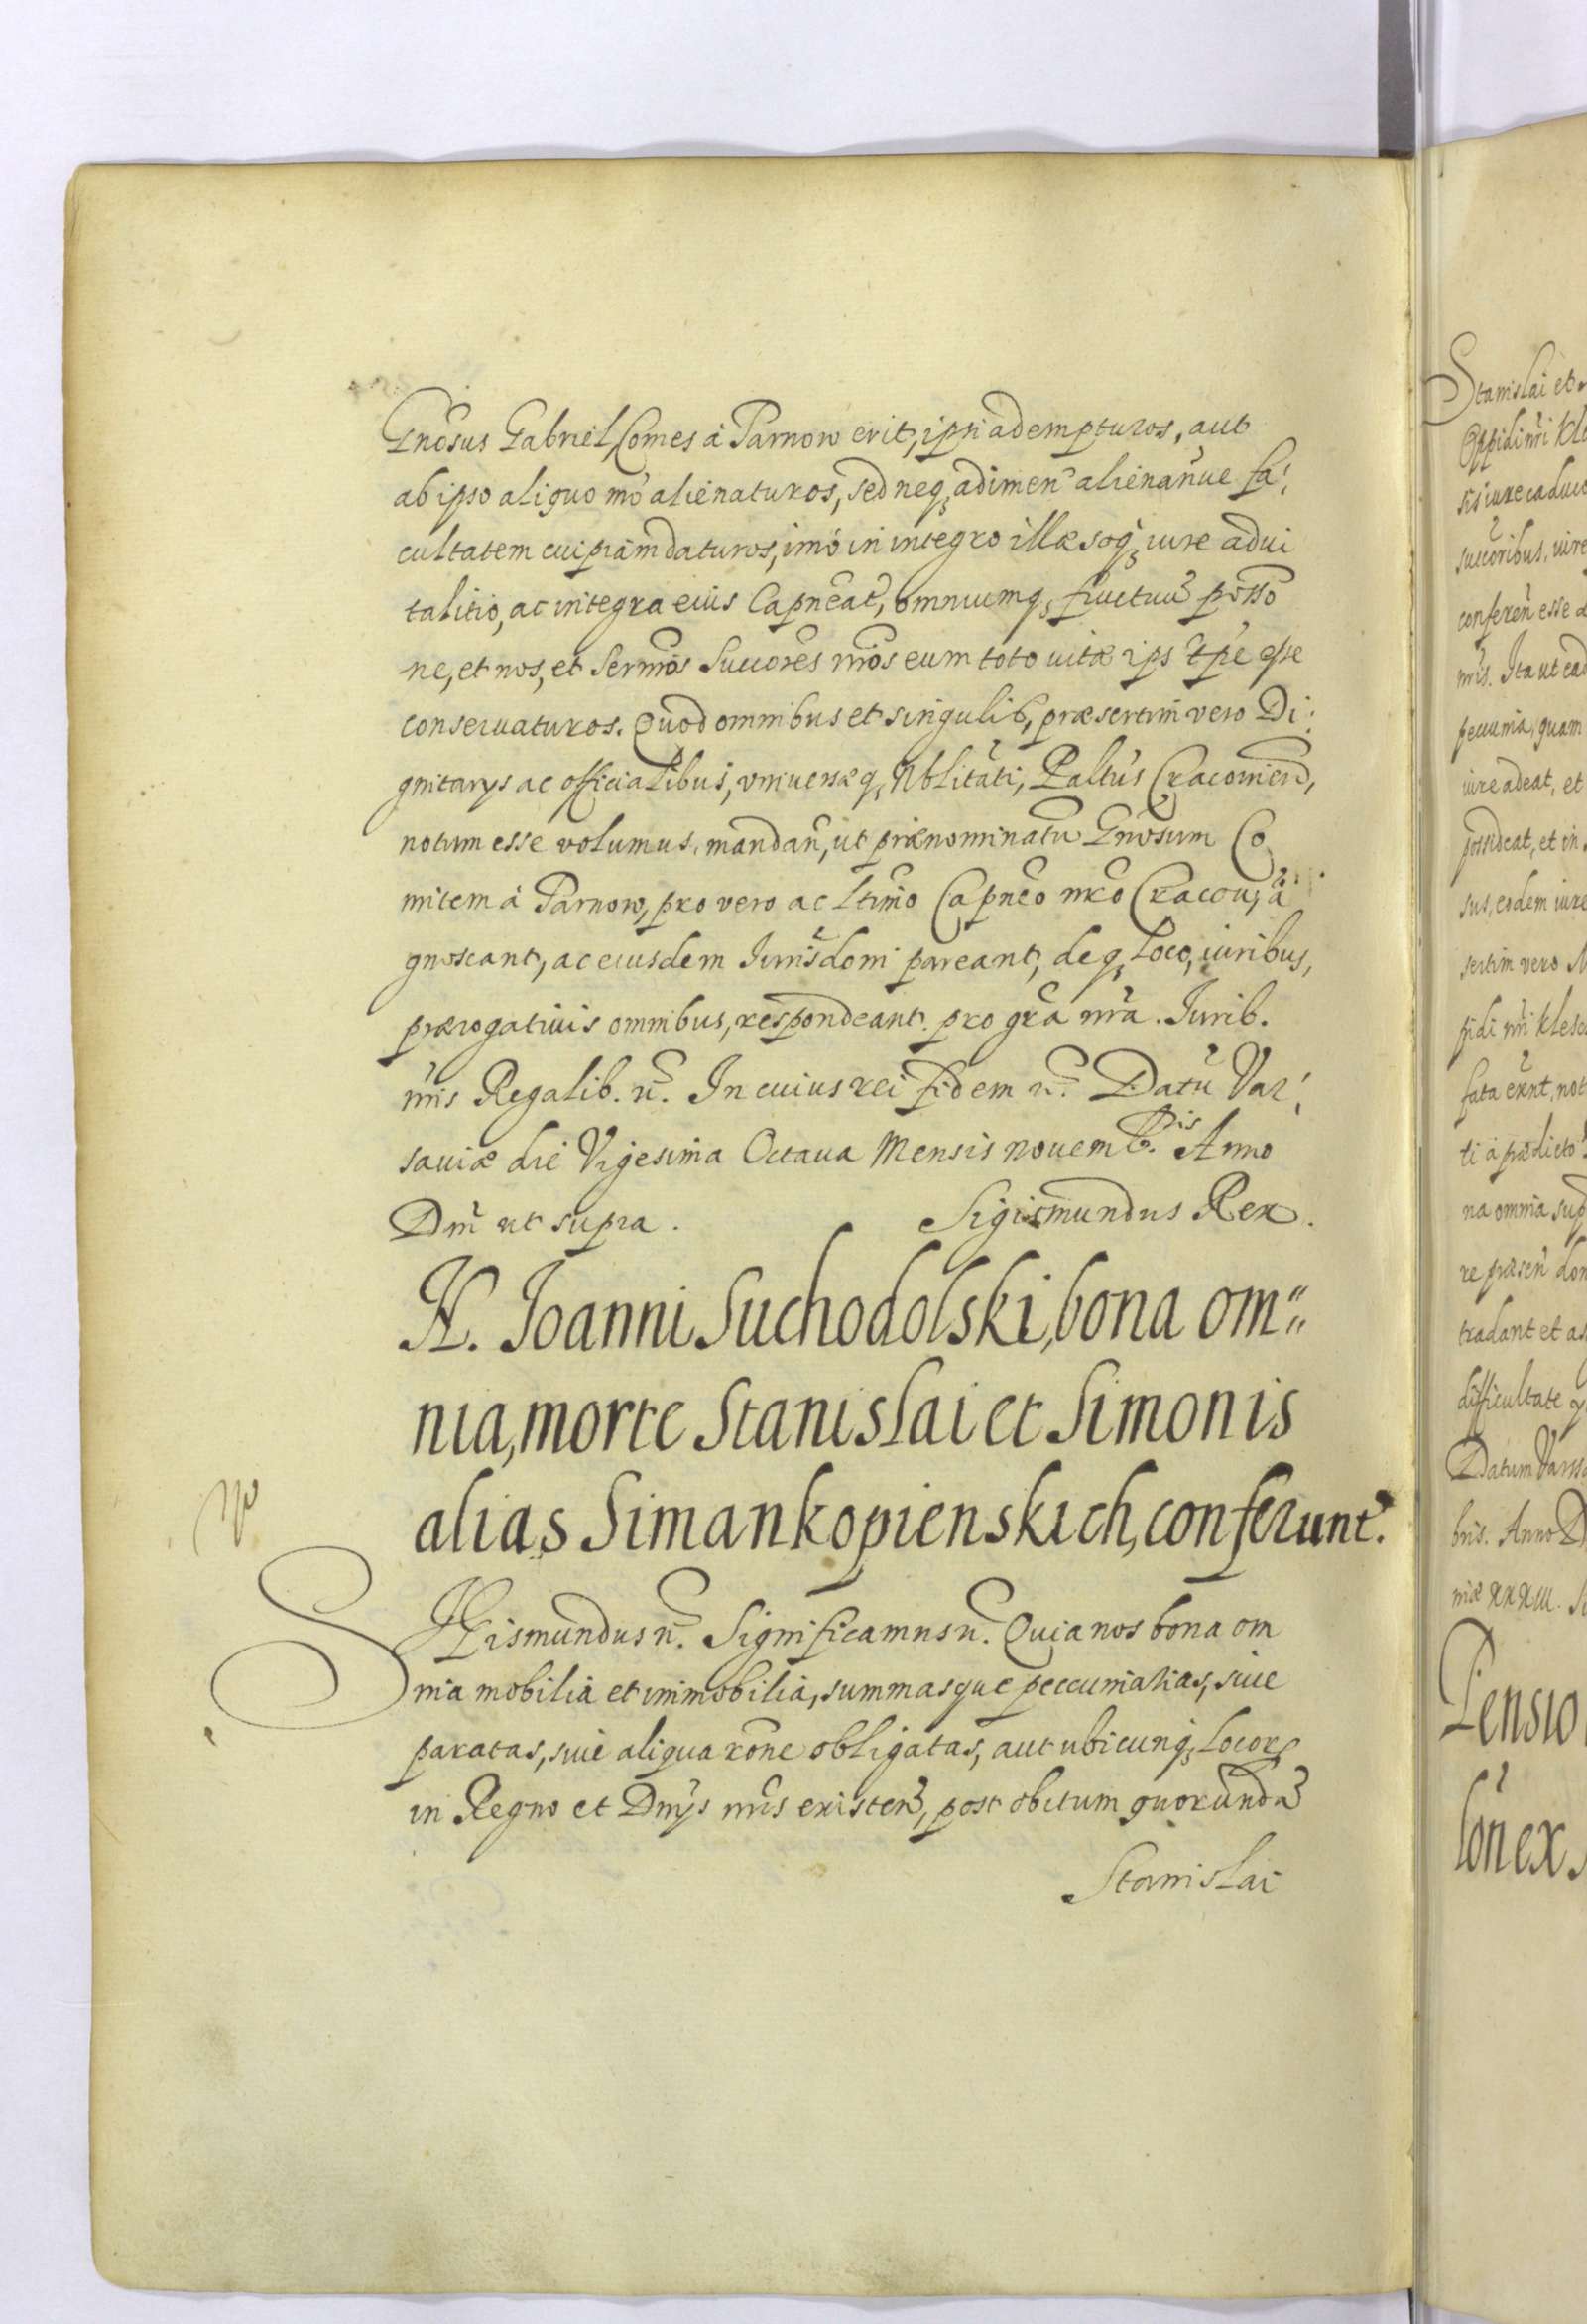 Gnosus Gabriel Comes à Tarnow erit, ipsi adempturos, aut
ab ipso aliquo mō alienaturos, sed neq₃ adimen̄ alienan̄ue fa:
cultatem cuipiam daturos, imò in integro illæsoq₃ iure adui
talitio, ac integra eius Capneat͂, omniumq₃ fructuū posso
ne, et nos, et Sermōs Succorēs nrōs eum toto uitæ ips tp̄e esse
conseruaturos. Quod omnibus et singulib, præsertim vero Di:
gnitarys ac officialibus, vniuersæq₃ Nblitāti, Paltūs Cracouien̄,
notum esse volumus, mandan̄, ut prænominatū Gnosum Co
mitem à Tarnow, pro vero ac ltimō Capnēo nrō Cracou, a
gnoscant, ac eiusdem Iurisdoni pareant, deq₃ loco, iuribus,
prærogatiuis omnibus, respondeant. pro grā nrā. Iurib.
nrīs Regalib. &c. In cuius rei fidem &c. Datū Var:
sauiæ die Vigesima Octaua Mensis nouemb.ris Anno
Dnī ut supra. Sigismundus Rex.
N. Joanni Suchodolski, bona om"
nia, morte Stanislai et Simonis
alias Simankopienskich, conferunt͂.
SIGismundus &c. Significamus &c. Quia nos bona om
nia mobilia et immobilia, summasque peccuniarias, siue
paratas, siue aliqua rōne obligatas, aut ubicunq₃ locor
in Regno et Dnīys nrīs existen̄, post obitum quorundā
Stanislai
Stanislai et
Oppidi nrī Kle
sis iure caduco
succoribus, iure
conferēn esse
nrīs. Ita ut ead
pecunia, quam
iure adeat, et
possideat, et in
sus, eodem iure
sertim vero N
pidi nrī Klesc
fata erunt, not
ti à prædicto
na omnia sup
re præsen̄ don
tradant et as
difficultate
Datum Varsa
bris. Anno D
niæ XXXIII. S
Pensio
lōn ex